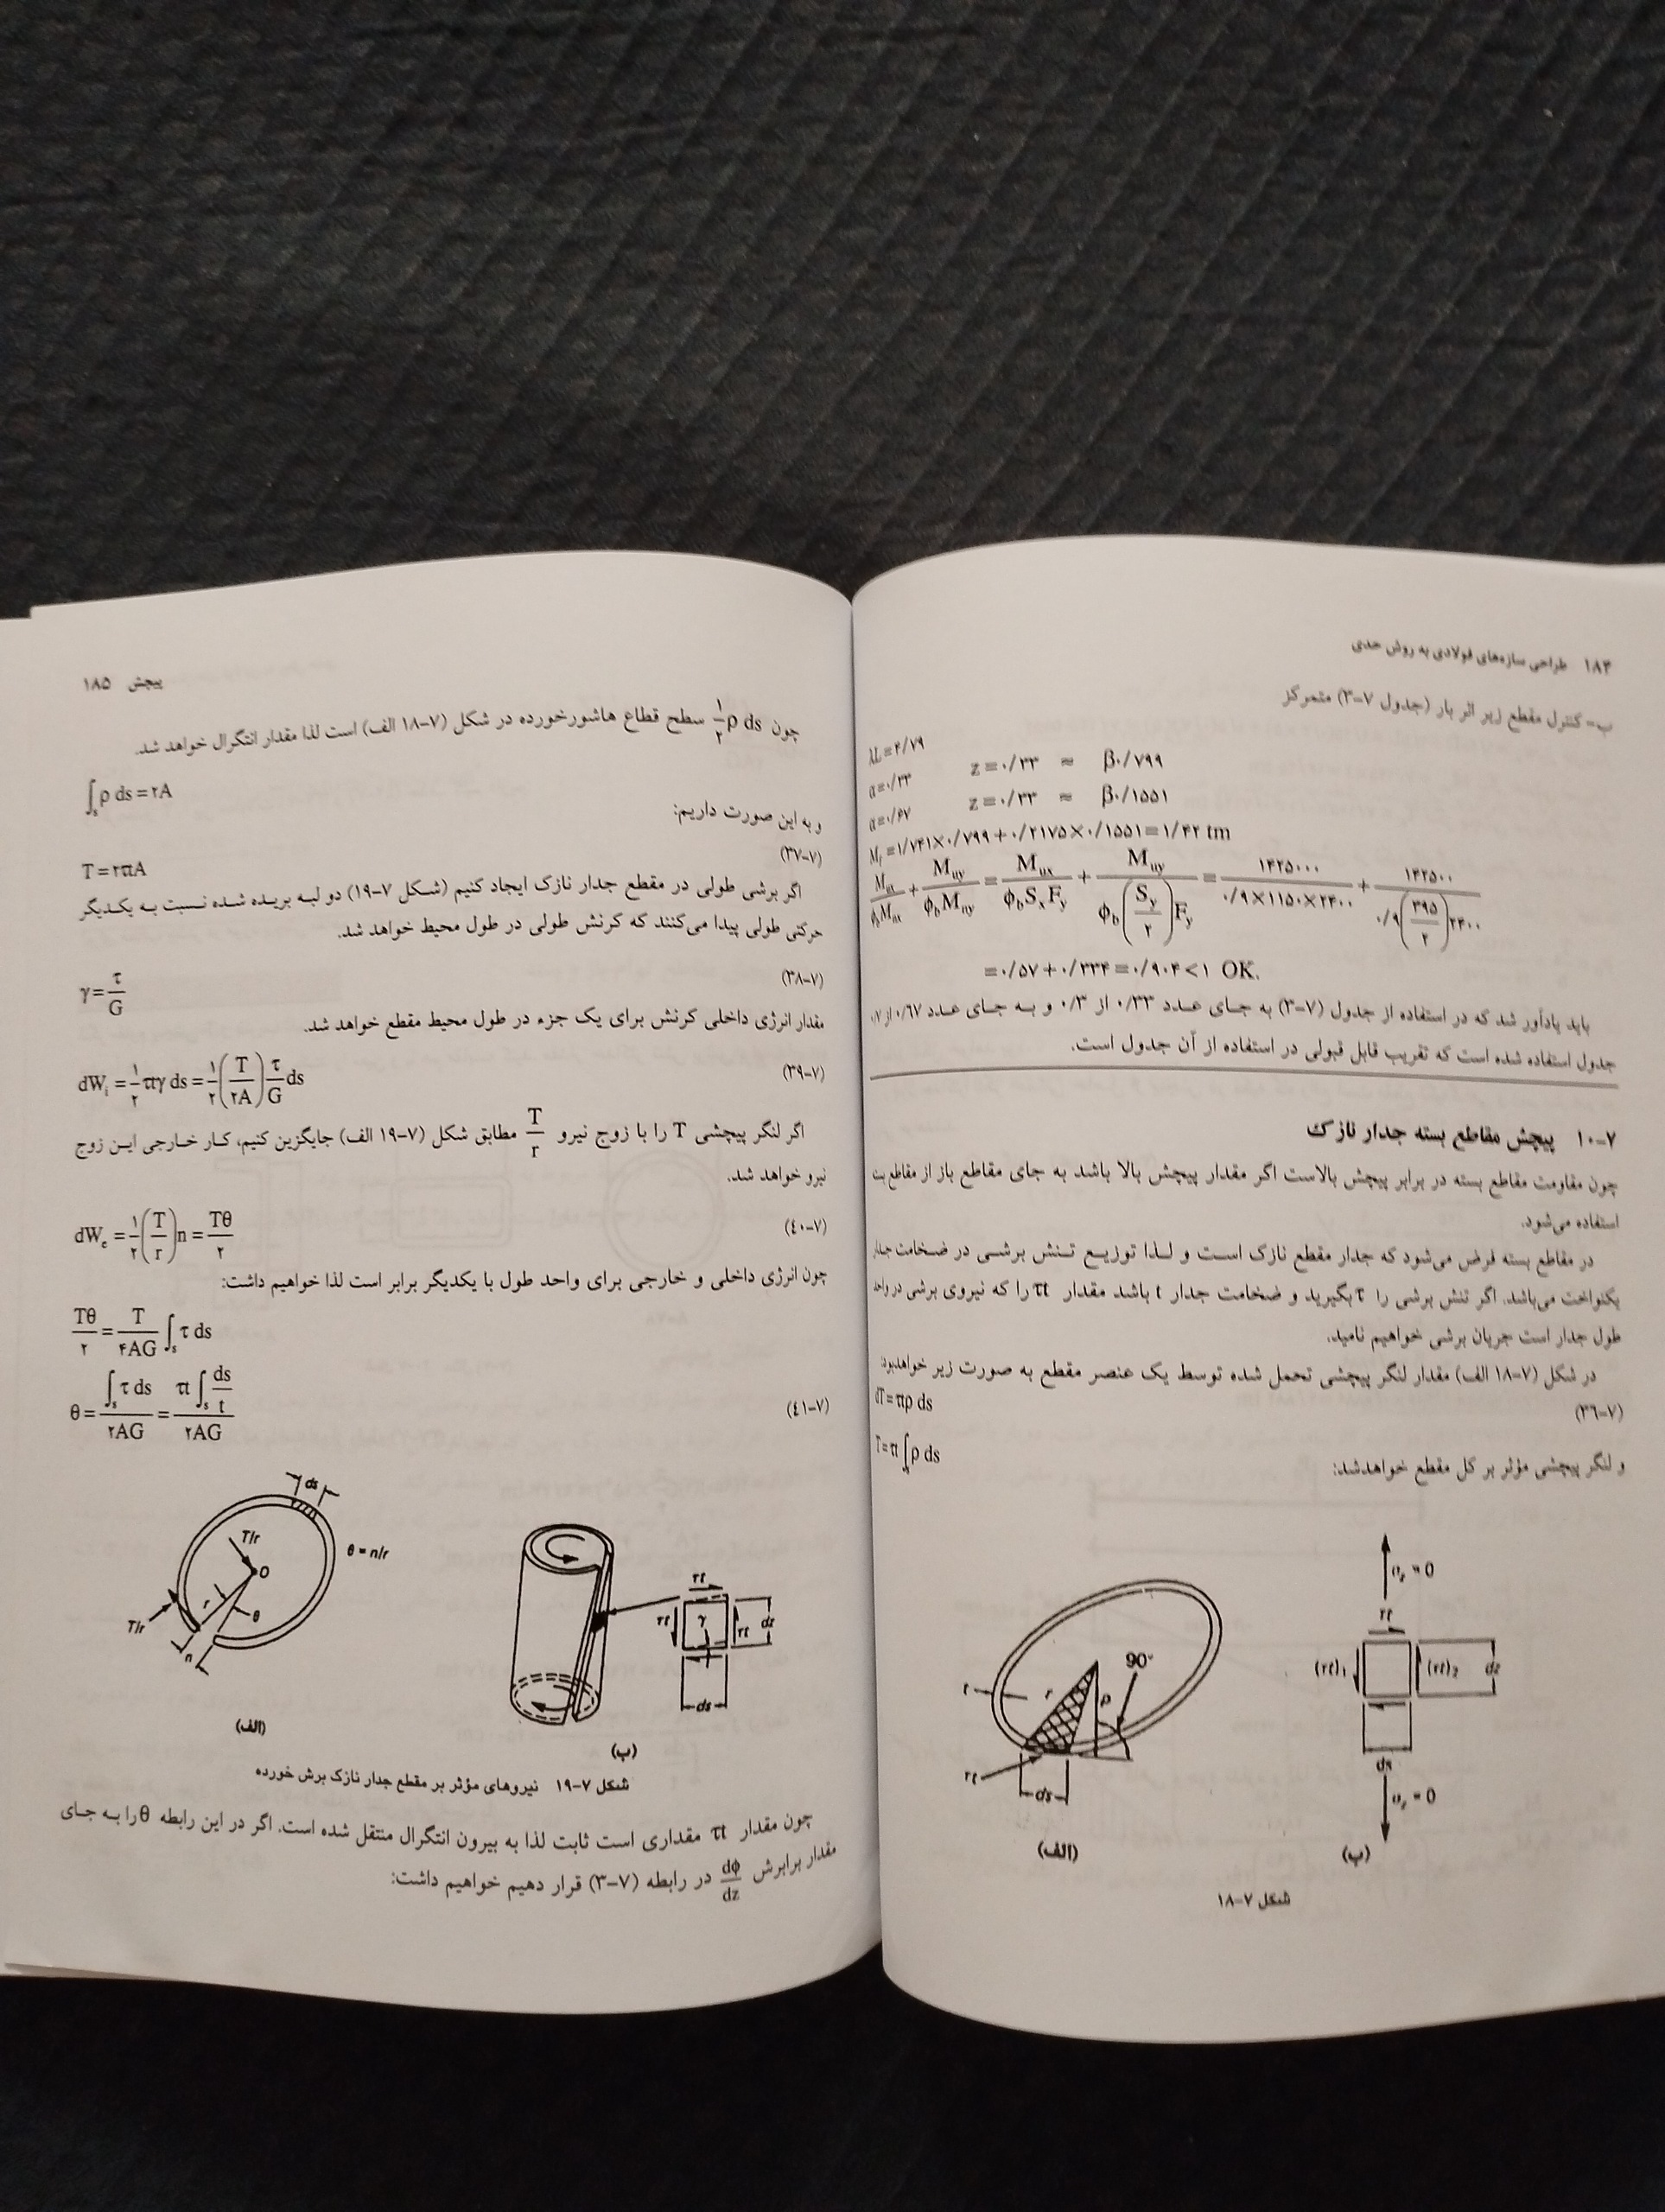 ۱۸۴ طراحی سازه‌های فولادی به روش حدی
ب- کنترل مقطع زیر اثر بار (جدول ۷-۳) متمرکز
λL=۴/۷۹
α=۰/۳۳ z=۰/۳۳ ≈ β۰/۷۹۹
α=۰/۶۷ z=۰/۳۳ ≈ β۰/۱۵۵۱
Mf=۱/۷۴۱×۰/۷۹۹+۰/۲۱۷۵×۰/۱۵۵۱=۱/۴۲ tm
Mux/φbMnx + Muy/φbMny = Mux/φbSxFy + Muy/φb(Sy/۲)Fy = ۱۴۲۵۰۰۰/۰/۹×۱۱۵۰×۲۴۰۰ + ۱۴۲۵۰۰/۰/۹(۳۹۵/۲)۲۴۰۰
=۰/۵۷+۰/۳۳۴=۰/۹۰۴<۱ OK.
باید یادآور شد که در استفاده از جدول (۷-۳) به جای عدد ۰/۳۳ از ۰/۳ و به جای عدد ۰/۶۷ از ۰/۷
جدول استفاده شده است که تقریب قابل قبولی در استفاده از آن جدول است.
۷-۱۰ پیچش مقاطع بسته جدار نازک
چون مقاومت مقاطع بسته در برابر پیچش بالاست اگر مقدار پیچش بالا باشد به جای مقاطع باز از مقاطع
استفاده می‌شود.
در مقاطع بسته فرض می‌شود که جدار مقطع نازک است و لذا توزیع تنش برشی در ضخامت
یکنواخت می‌باشد. اگر تنش برشی را τ بگیرید و ضخامت جدار t باشد مقدار τt را که نیروی برشی در واحد
طول جدار است جریان برشی خواهیم نامید.
در شکل (۷-۱۸ الف) مقدار لنگر پیچشی تحمل شده توسط یک عنصر مقطع به صورت زیر خواهدبود:
(۷-۳۶) dT=τtρ ds
و لنگر پیچشی مؤثر بر کل مقطع خواهدشد:
T=τt∫ρ ds
t
r
ρ
90°
τt
ds
(الف)
σz=0
τt
(τt)1
(τt)2
dz
ds
σz=0
(ب)
شکل ۷-۱۸
پیچش ۱۸۵
چون ۱/۲ρ ds سطح قطاع هاشورخورده در شکل (۷-۱۸ الف) است لذا مقدار انتگرال خواهد شد.
∫s ρ ds=۲A
و به این صورت داریم:
(۷-۳۷) T=۲τtA
اگر برشی طولی در مقطع جدار نازک ایجاد کنیم (شکل ۷-۱۹) دو لبه بریده شده نسبت به یکدیگر
حرکتی طولی پیدا می‌کنند که کرنش طولی در طول محیط خواهد شد.
(۷-۳۸) γ=τ/G
مقدار انرژی داخلی کرنش برای یک جزء در طول محیط مقطع خواهد شد.
(۷-۳۹) dWi=۱/۲τtγ ds=۱/۲(T/۲A)τ/G ds
اگر لنگر پیچشی T را با زوج نیرو T/r مطابق شکل (۷-۱۹ الف) جایگزین کنیم، کار خارجی این زوج
نیرو خواهد شد.
(۷-۴۰) dWe=۱/۲(T/r)n=Tθ/۲
چون انرژی داخلی و خارجی برای واحد طول با یکدیگر برابر است لذا خواهیم داشت:
Tθ/۲=T/۴AG∫s τ ds
(۷-۴۱) θ=∫s τ ds/۲AG=τt∫s ds/t/۲AG
ds
T/r
o
θ=n/r
r
θ
T/r
n
(الف)
τt
τt
γ
τt
dz
ds
(ب)
شکل ۷-۱۹ نیروهای مؤثر بر مقطع جدار نازک برش خورده
چون مقدار τt مقداری است ثابت لذا به بیرون انتگرال منتقل شده است. اگر در این رابطه θ را به جای
مقدار برابرش dφ/dz در رابطه (۷-۳) قرار دهیم خواهیم داشت: